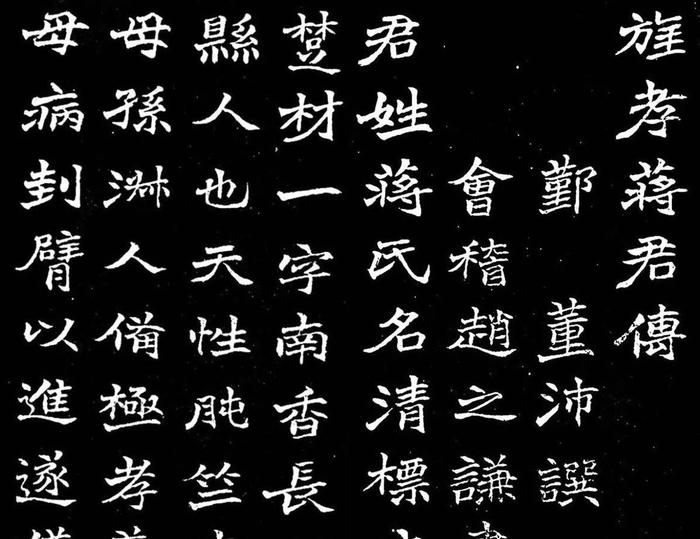 旌孝蔣君傳
鄞董沛譔
會稽趙之謙書
君姓蔣氏名清標
楚材一字南香長
縣人也天性肫竺
母孫淑人備極孝
母病刲臂以進遂